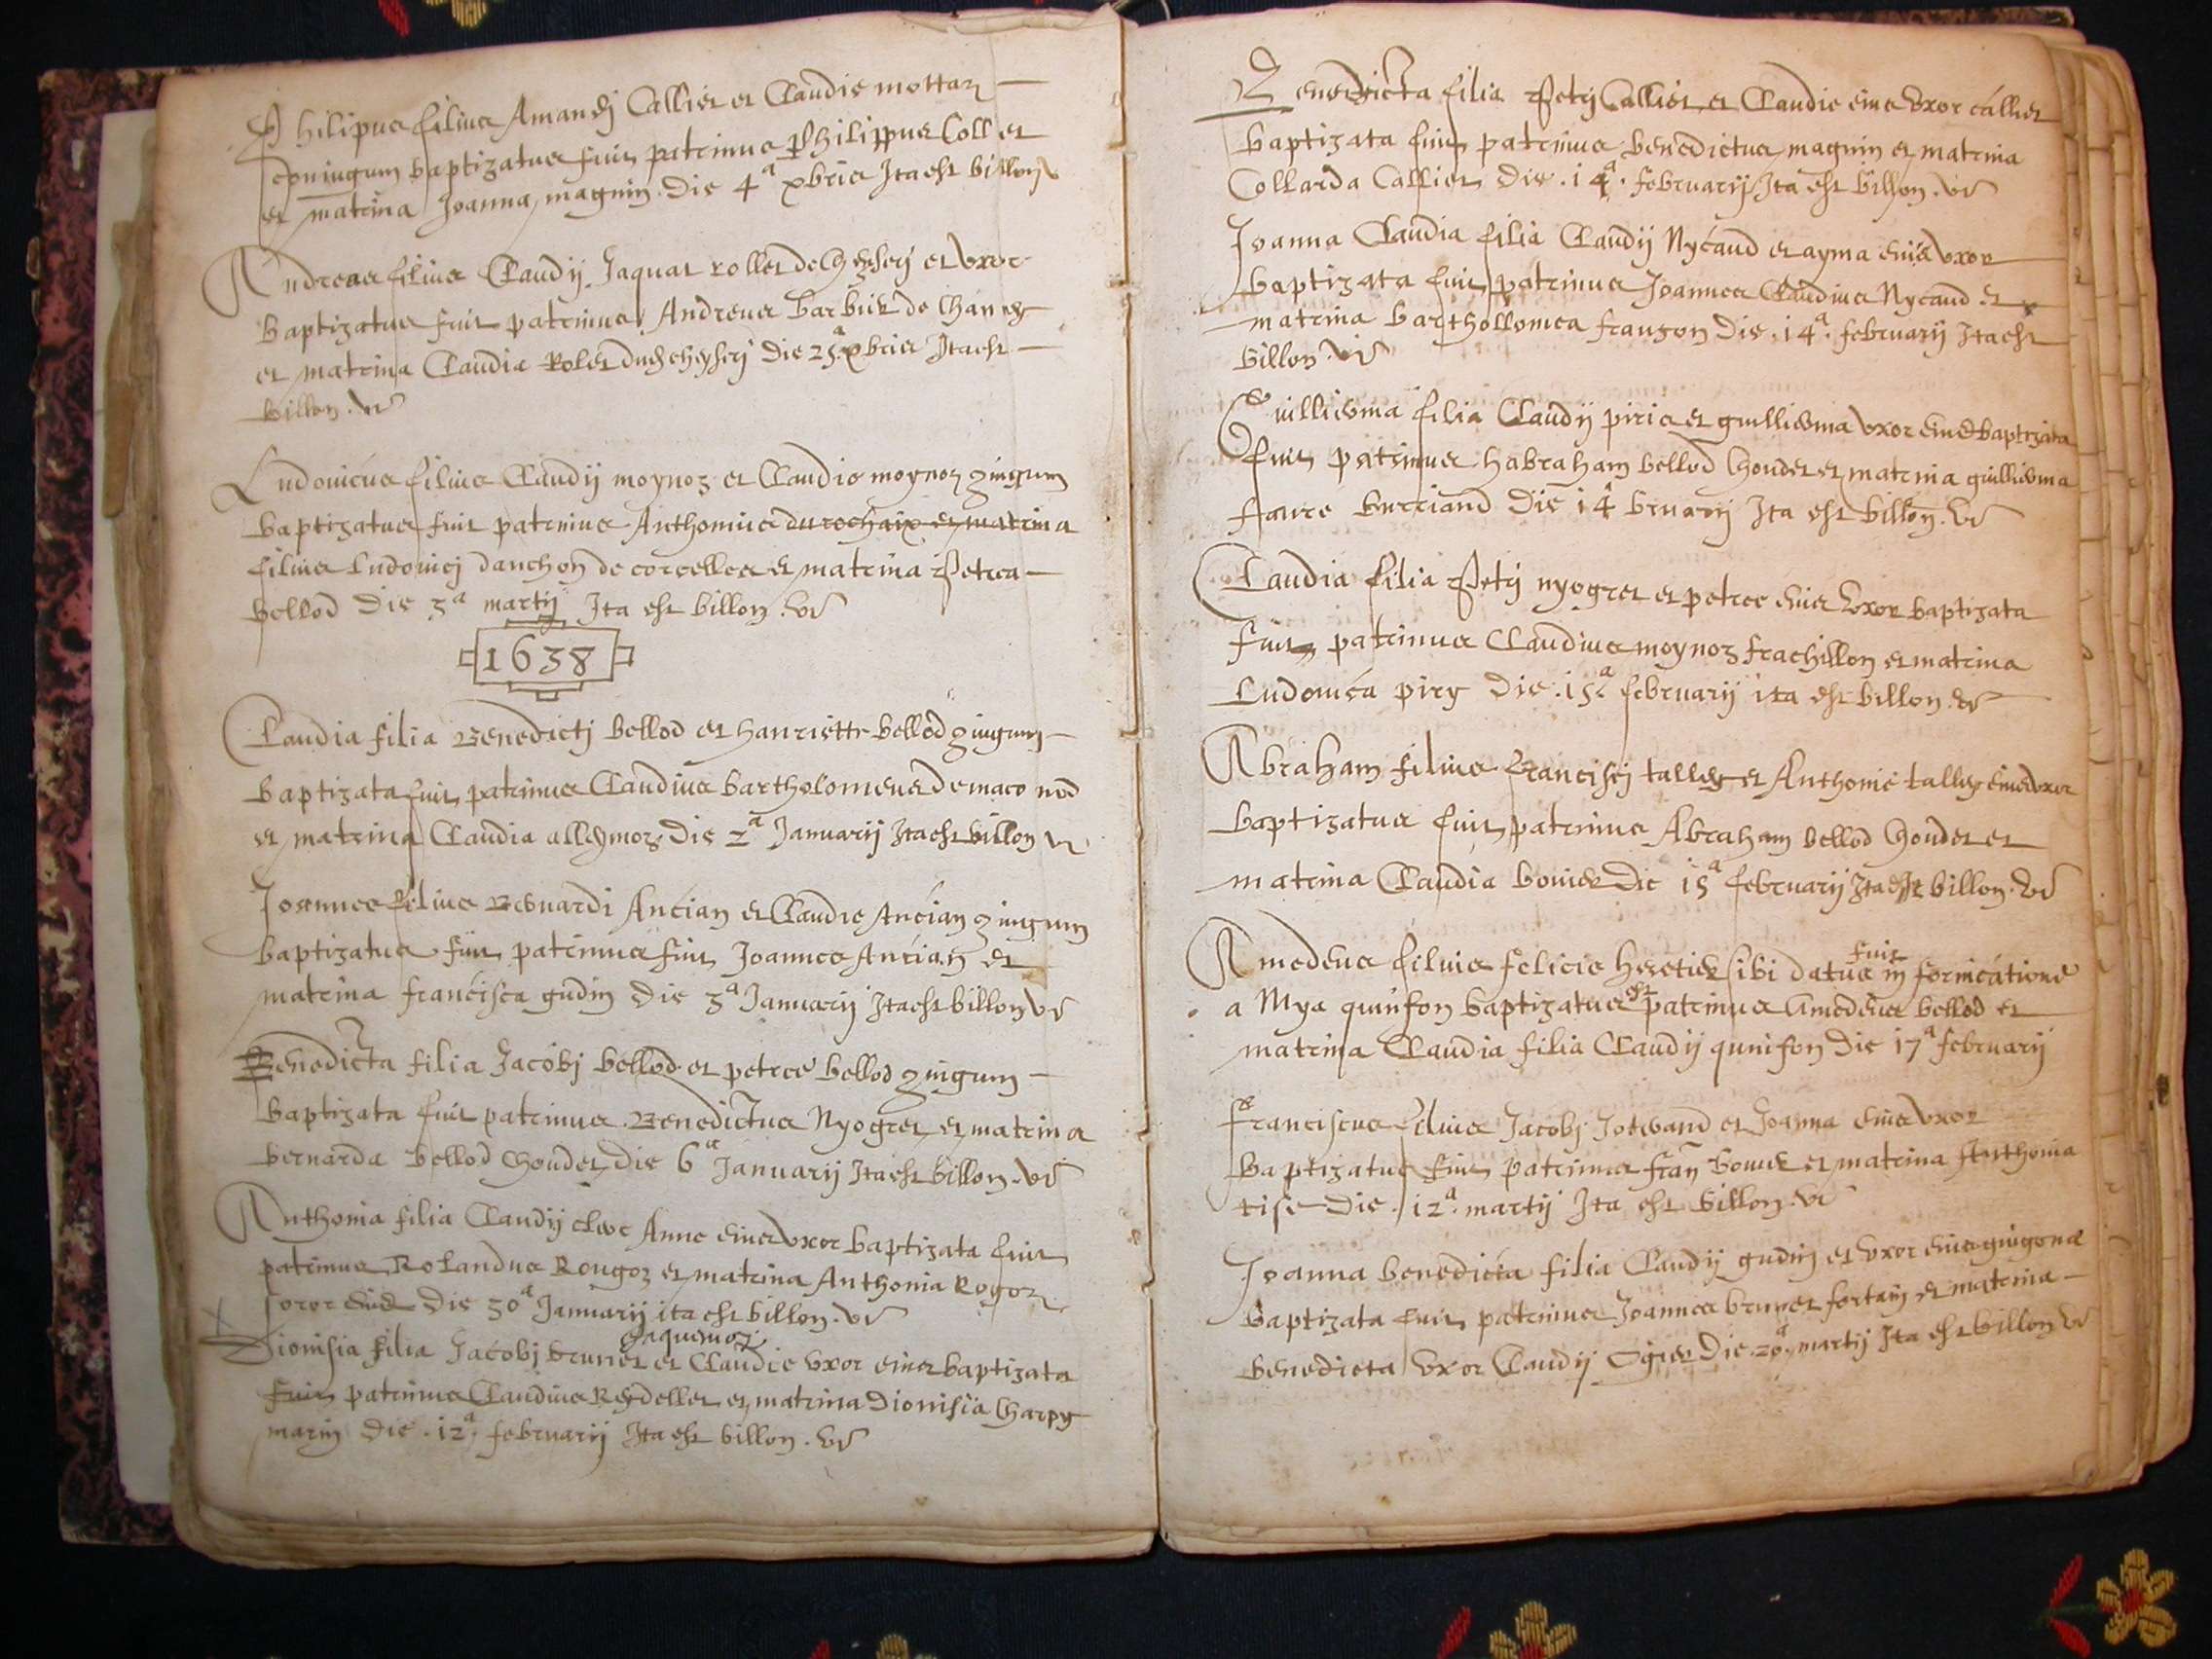 Philipus filius Amandj Callier et Claudie mottaz
coniugum baptizatus fuit patrinus Philippus Coll et
et matrina Joanna magnin die 4a xbris Ita est billon vr
Andreas filius Claudij Jaquat rollet de Cheysery et uxor
baptizatus fuit patrinus Andreus barbier de Chaney
et matrina Claudia Rolet dud cheysery die 25a xbris Ita est
billon vr
Ludovicus filius Claudij moynoz et Claudie moynoz giugum
baptizatus fuit patrinus Anthonius du rochaix et matrina
filius Ludovicj danchon de corcelles et matrina Petrea
bellod die 3a martij Ita est billon vr
1638
Claudia filia Benedictj bellod et hanriette bellod giugum
baptizata fuit patrinus Claudius bartholomeus demaco nod
et matrina Claudia alleymoz die 2a Januarij Ita est billon vr
Joannes filius Bernardi Ancian et Claudie Ancian giugum
baptizatus fuit patrinus fuit Joannes Ancian et
matrina francisca gudin die 3a Januarij Ita est billon vr
Benedicta filia Jacobj bellod et petree bellod giugum
baptizata fuit patrinus Benedictus Nyogret et matrina
bernarda bellod Choudet die 6a Januarij Ita est billon vr
Anthonia filia Claudij clerc Anne eius uxor baptizata fuit
patrinus Rolandus Rougoz et matrina Anthonia Rogoz
soror eius die 30a Januarij ita est billon vr
Jaquenoz
Dionisia filia Jacobj brunet et Claudie uxor eius baptizata
fuit patrinus Claudius Reydellet et matrina Dionisia Charpy
marin die 12a februarij Ita est billon vr
Benedicta filia Petrj Callier et Claudie eius uxor callier
baptizata fuit patrinus benedictus magnin et matrina
Collarda Callier die 14a februarij Ita est billon vr
Joanna Claudia filia Claudij Nycaud et ayma eius uxor
baptizata fuit patrinus Joannes Claudius Nycaud et
matrina barthollomea frangon die 14a februarij Ita est
billon vr
Guillierma filia Claudij piric et guillierma uxor eius baptizata
fuit patrinus habraham bellod Choudet et matrina guillierma
faure burriand die 14a bruarij Ita est billon vr
Claudia filia Petrj nyogret et petree eius uxor baptizata
fuit patrinus Claudius moynoz frachillon et matrina
Ludovica piry die 15a februarij ita est billon vr
Abraham filius Francisci talley et Anthonie talley eius uxor
baptizatus fuit patrinus Abraham bellod Choudet et
matrina Claudia bovier die 15a februarij Ita est billon vr
Amedeus filius felicis heretier sibi datus fuit in fornicatione
a Mya quinson baptizatus est patrinus Amedeus bellod et
matrina Claudia filia Claudij quinson die 17a februarij
Franciscus filius Jacobj Joevand et Joanna eius uxor
baptizatus fuit patrinus fran bovier et matrina Anthonia
tise die 12a martij Ita est billon vr
Joanna benedicta filia Claudij gudin et uxor eius guigona
baptizata fuit patrinus Joannes brunet fortain et matrina
benedicta uxor Claudij Ogier die 20a martij Ita est billon vr